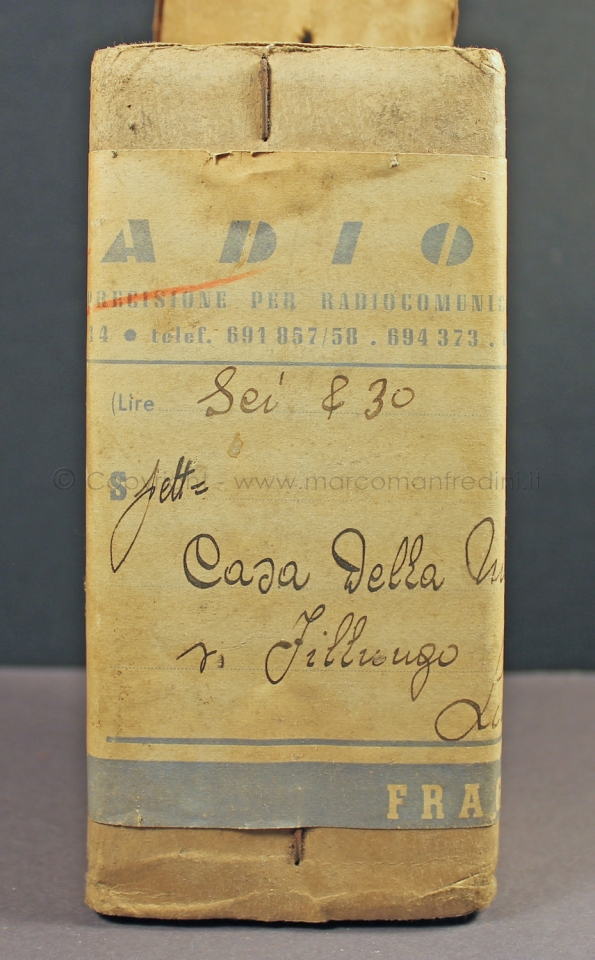 ADIO
PRECISIONE PER RADIOCOMUNIC
14 • telef. 691 857/58 . 694 373 .
(Lire Sei £ 30
Spett=
© Copyright - www.marcomanfredini.it
Casa Della
v. Fillungo
FRAG